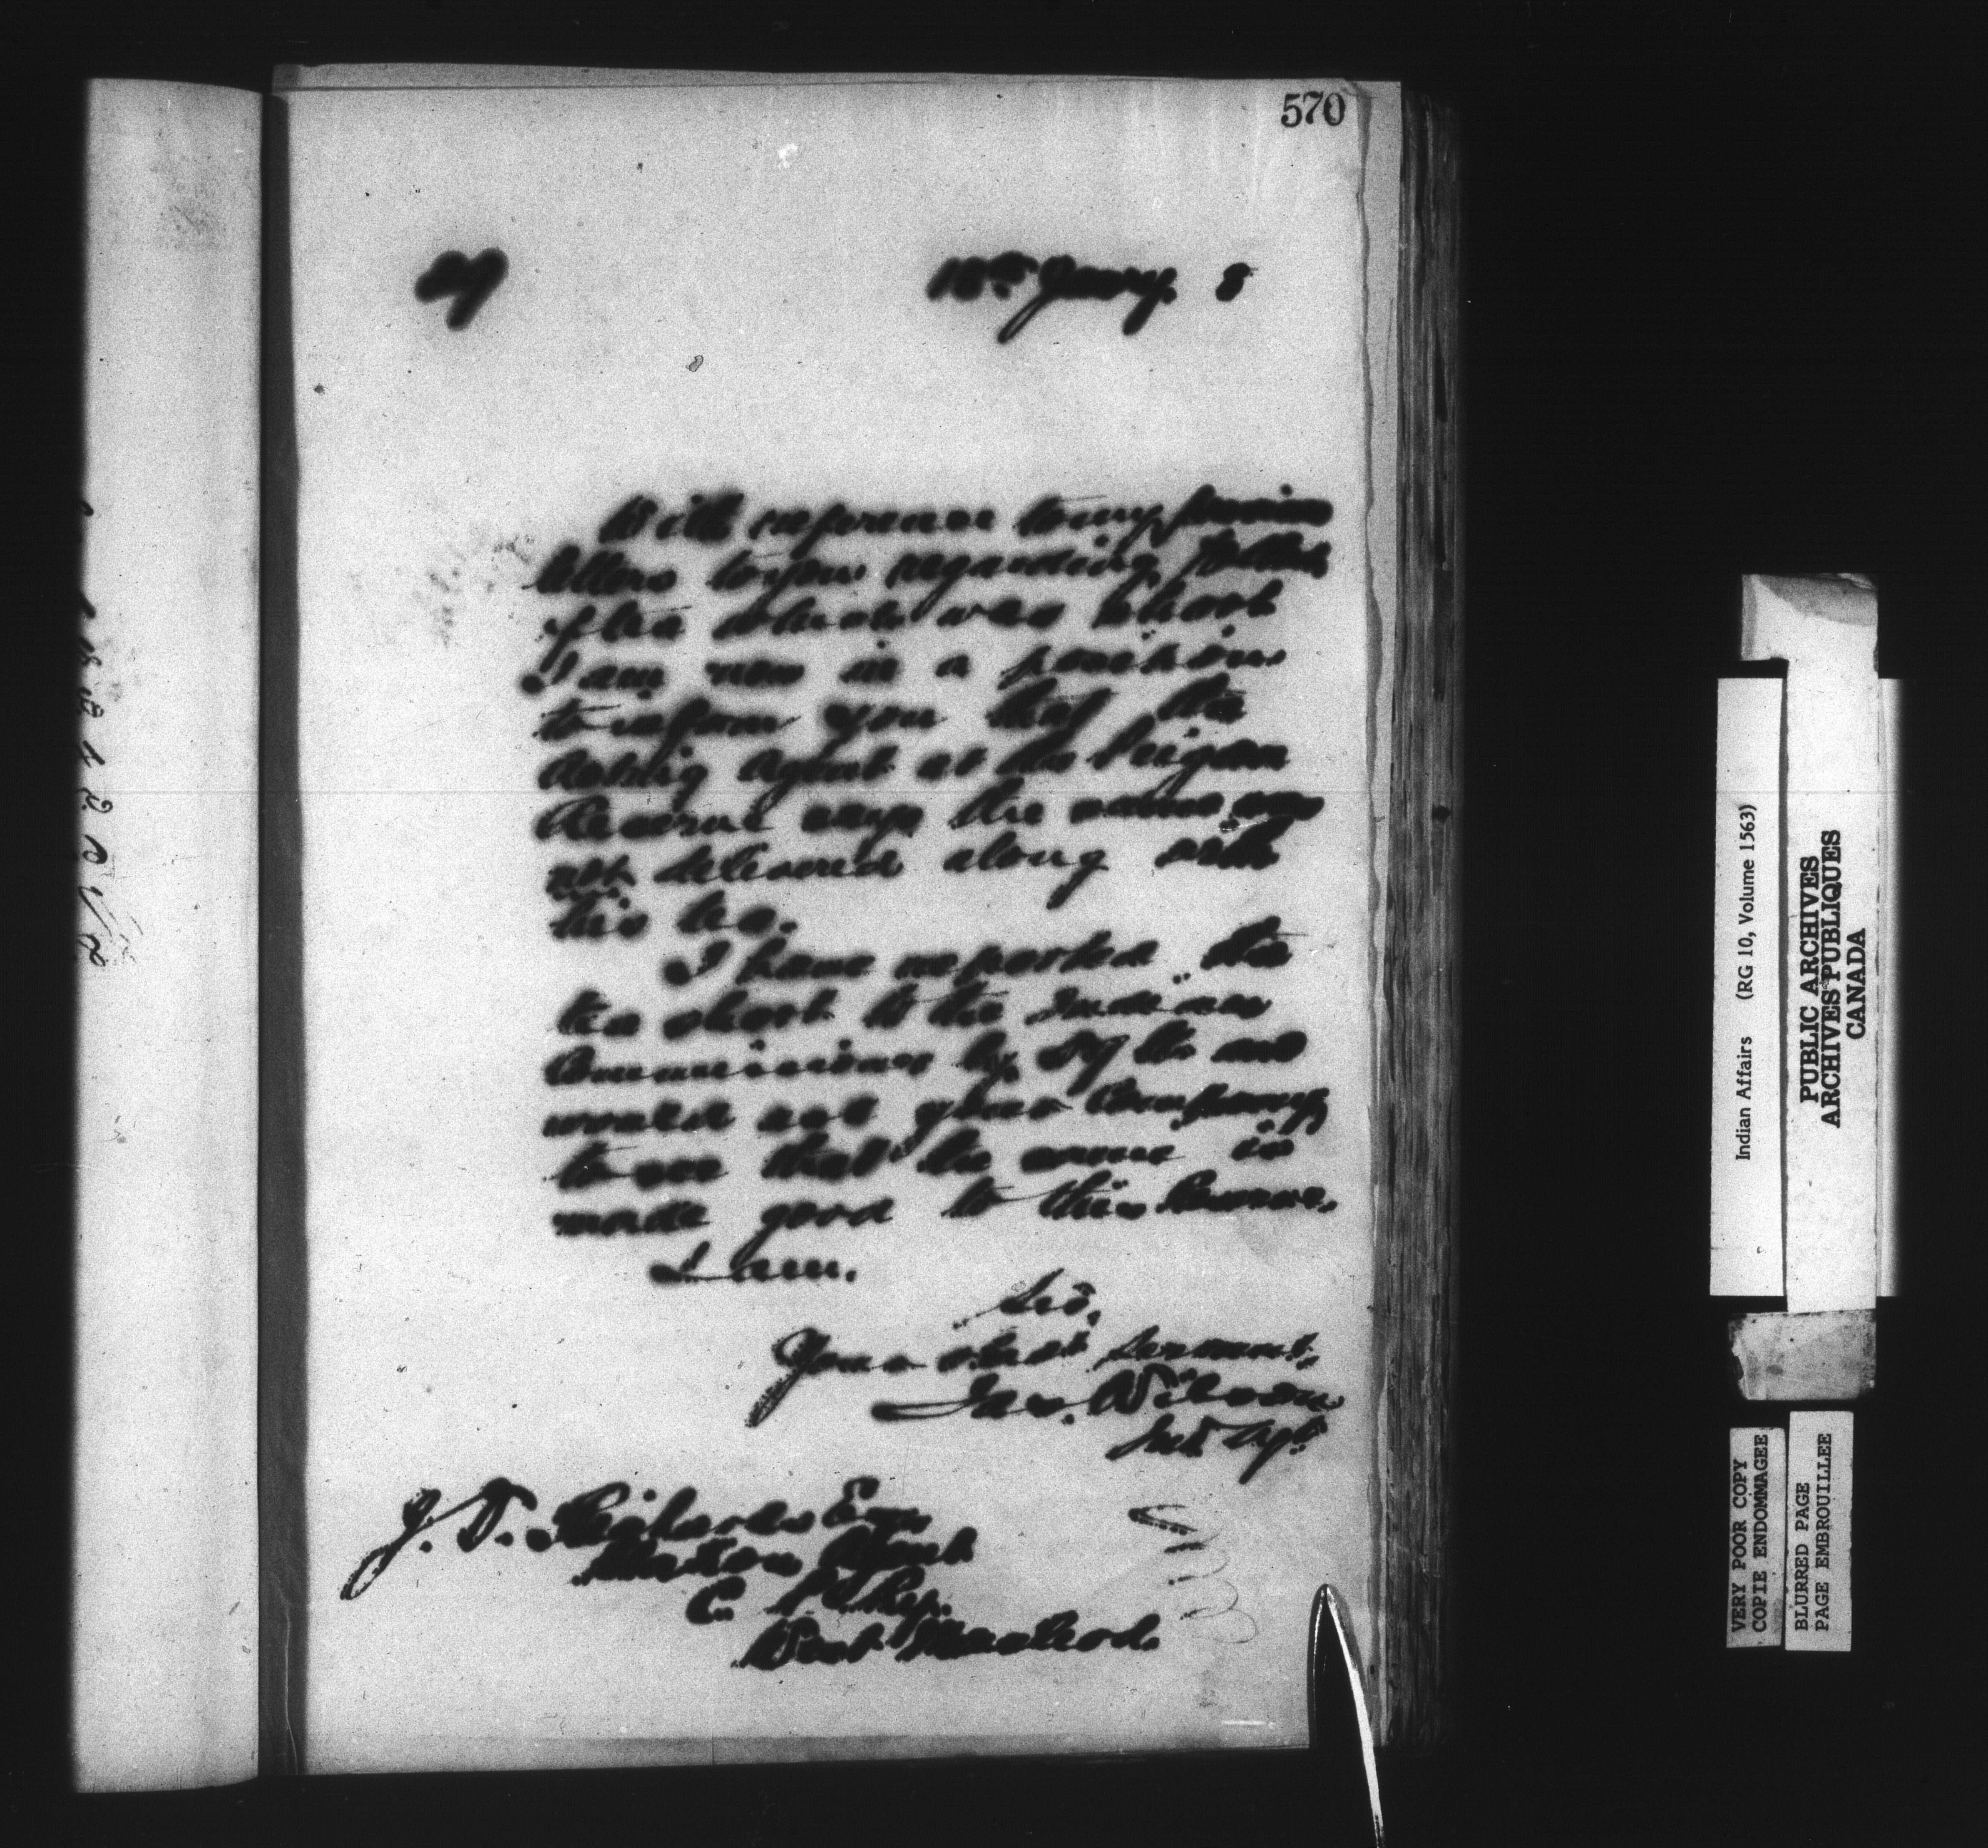 570
29
18th Jany. 8
With reference to my previous
letters to you regarding
of tea which was short
I am now in a position
to inform you that the
Acting Agent at the Peigan
Reserve says the same was
not delivered along with
his tea.
I have reported the
tea short to the Indian
Commissioner by 59 lbs and
would ask your Company
to see that the same is
made good to this Reserve.
I am.
Sir,
Your obedt servant,
Jas. Wilson
Ind Agt
J. D. Esq
Agent
C. P. Ry.
West Macleod.
Indian Affairs (RG 10, Volume 1563)
PUBLIC ARCHIVES
ARCHIVES PUBLIQUES
CANADA
VERY POOR COPY
COPIE ENDOMMAGEE
BLURRED PAGE
PAGE EMBROUILLEE